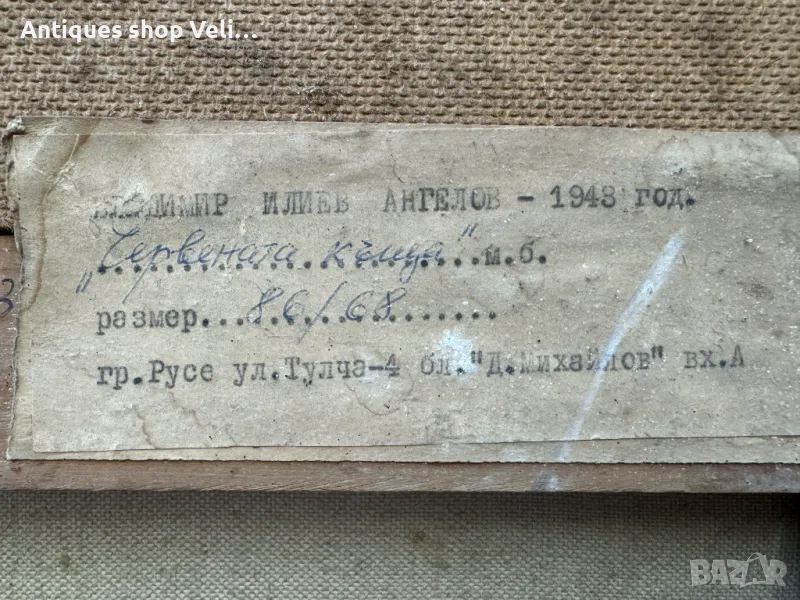 Antiques shop Veli...
ВЛАДИМИР ИЛИЕВ АНГЕЛОВ - 1943 год.
„Червената къща" м.б.
размер...86/68........
гр.Русе ул.Тулча-4 бл."Д.Михайлов" вх.А
3
BAZAR